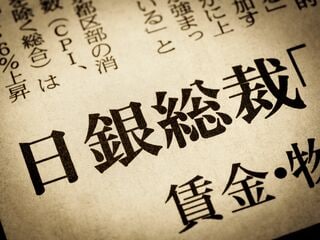 かに上
強まっ
いる」と
都区部の消
数(CPI、
を除く総合)は
6%上昇
日銀総裁「
賃金・物